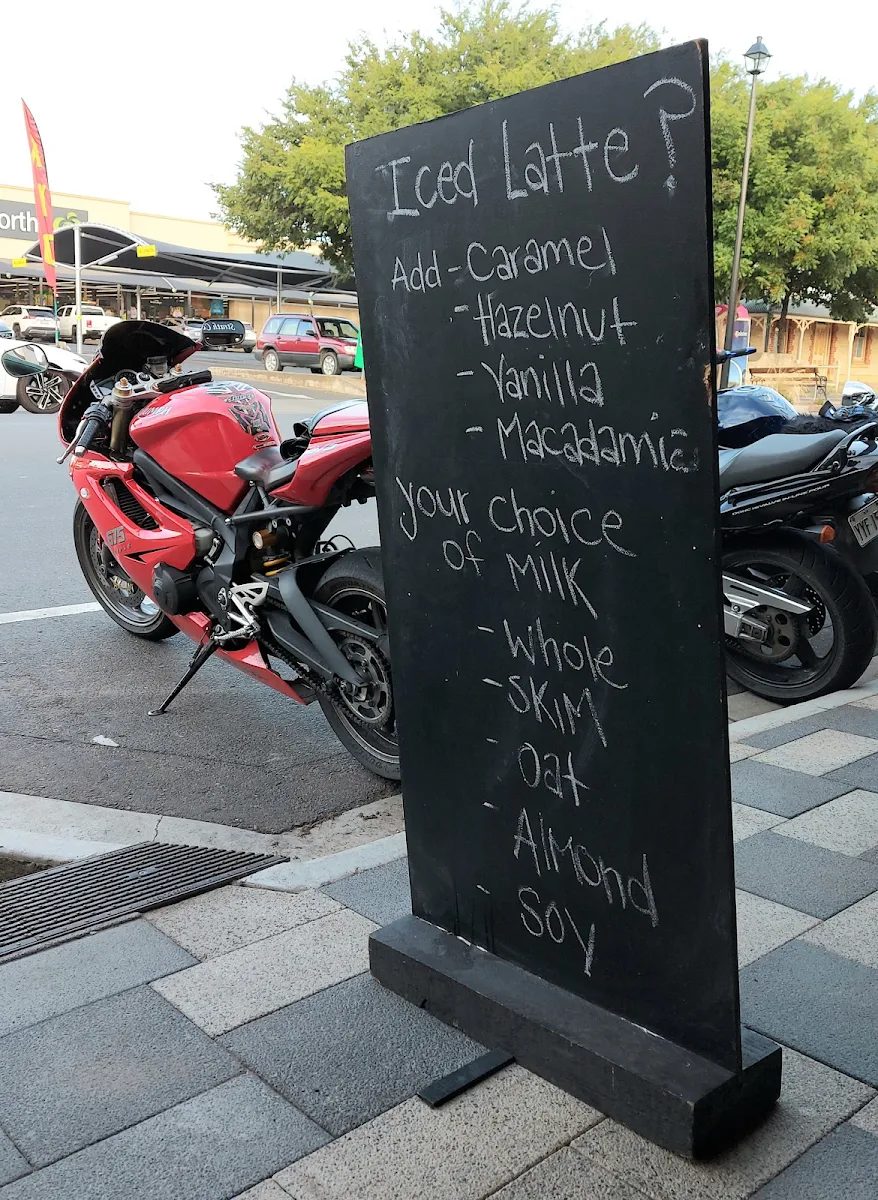 Iced Latte?
Add - Caramel
- Hazelnut
- Vanilla
- Macadamia
your choice
of Milk
- Whole
- SKIM
- Oat
- Almond
- Soy
orth
675